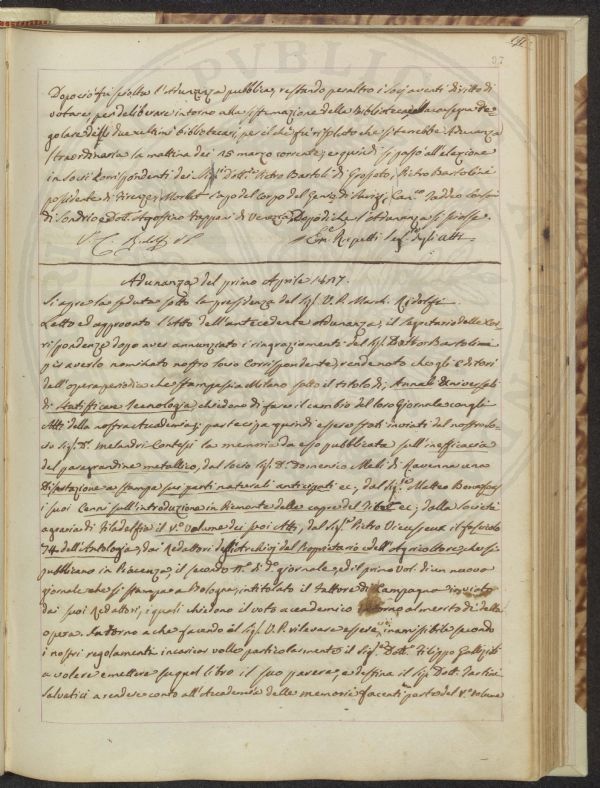 97
Dopo ciò fu sciolta l'adunanza pubblica, restando peraltro i Socj aventi diritto di
votare per deliberare intorno alla sistemazione della Biblioteca, alla consegna re=
golare degli due ultimi bibliotecarj, per il che fu risoluto che si terrebbe Adunanza
straordinaria la mattina dei 15 marzo corrente; e quindi si passò all'elezione
in Socj Corrispondenti dei Sigri Dott. Pietro Bartoli di Grosseto, Pietro Bartolini
possidente di Firenze, Capo del Corpo del Genio di Parigi, Taddeo
di Sondrio e Dott. Agostino di Venezia. Dopo di che l'Adunanza si sciolse.
V. C. Ridolfi VP Em. Repetti Segrio degli atti
Adunanza del primo Aprile 1827.
Si apre la seduta sotto la presidenza del Sigr V. P. March. Ridolfi
Letto ed approvato l'Atto dell'antecedente Adunanza, il Segretario delle Cor
rispondenze dopo aver annunziato i ringraziamenti del Sigr Dottor Bartolini
per averlo nominato nostro Socio Corrispondente, rende noto che gli Editori
dell'opera periodica che stampasi a Milano sotto il titolo di, Annali Universali
di Statistica e Tecnologia, chiedono di fare il cambio del loro Giornale con gli
Atti della nostra Accademia; partecipa quindi essere stati inviati dal nostro So-
cio Sigr Dr. Melandri Contessi la memoria da esso pubblicata sull'inefficacia
del paragrandine metallico, dal Socio Sigr Dr. Domenico Meli di Ravenna una
Dissertazione a stampa sui parti naturali anticipati ec; dal Sigr Matteo Bonafous
i suoi Cenni sull'introduzione in Piemonte delle capre del Tibet ec; dalla Società
agraria di Filadelfia il Vo Volume dei suoi Atti, dal Sigr Pietro Vieusseux il fascicolo
74 dell'Antologia, dai Redattori del Proprietario e dell'Agricoltore, che si
pubblicano in Piacenza, il secondo No. di do giornale; ed il primo Vol. di un nuovo
giornale che si stampa a Bologna, intitolato il Fattore di Campagna inviato
dai suoi Redattori, i quali chiedono il voto accademico intorno al merito di detta
opera. Intorno a che facendo il Sigr V. P. rilevare essere inammissibile secondo
i nostri regolamenti incaricar volle particolarmente il Sigr Dott. Filippo Gallizioli
a volere emettere su quel libro il suo parere; e destina il Sigr Dott.
Salvatici a rendere conto all'Accademia delle memorie facenti parte del Vo Volume